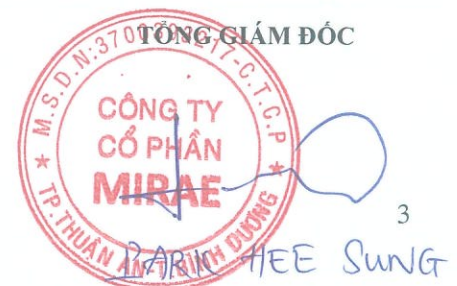 TỔNG GIÁM ĐỐC
CÔNG TY
CỔ PHẦN
MIRAE
TP.THUẬN AN-T.BÌNH DƯƠNG
3
PARK HEE SUNG